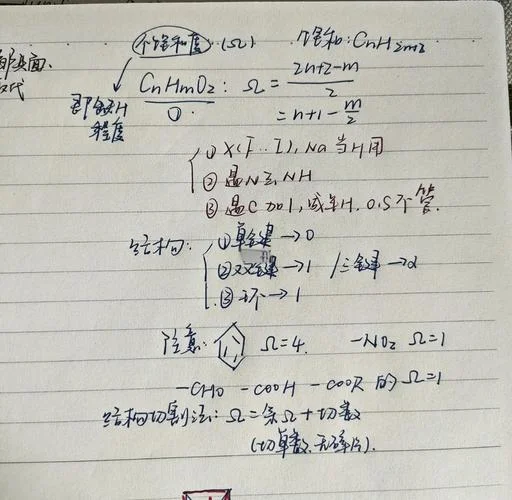 不饱和度 (Ω) 饱和: CnH2n+2
CnHmOz: Ω = (2n+2-m)/2
即缺H
程度
①
= n+1-m/2
① X(F…I), Na 当H用
② 遇N→NH
③ 遇C加1, 减半H. O.S不管.
结构:
① 单键→0
② 双键→1 /三键→2
③ 环→1
注意: Ω=4. -NO2 Ω=1
-CHO -COOH -COOR 的Ω=1
结构切割法: Ω = 余Ω + 切数
(切单数, 无碎片).